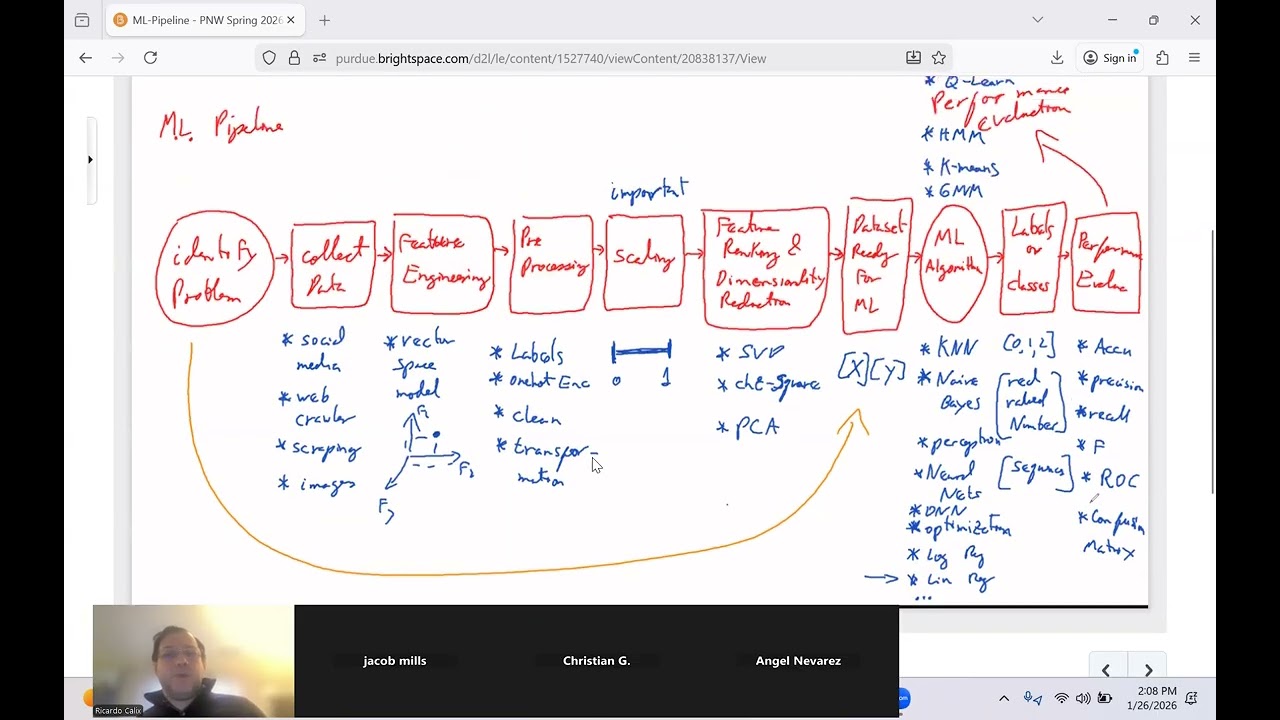 ML-Pipeline - PNW Spring 2026
purdue.brightspace.com/d2l/le/content/1527740/viewContent/20838137/View
Sign in
M.L. Pipeline
* Q-Learn
Performance
Evaluation
* HMM
* K-means
* GMM
important
identify
Problem
collect
Data
Feature
Engineering
Pre
Processing
Scaling
Feature
Ranking &
Dimensionality
Reduction
Dataset
Ready
For
ML
ML
Algorithm
Labels
or
classes
Perform
Evaluate
* social
media
* web
crawler
* scraping
* images
* vector
space
model
F1
F2
F3
* Labels
* onehot Enc
* clean
* transfor-
mation
0 1
* SVD
* chi-square
* PCA
[X][Y]
* KNN
* Naive
Bayes
* perceptron
* Neural
Nets
* DNN
* optimization
* Log Reg
* Lin Reg
...
[0,1,2]
real
valued
Number
[sequences]
* Accu
* precision
* recall
* F
* ROC
* Confusion
Matrix
Ricardo Calix
jacob mills
Christian G.
Angel Nevarez
2:08 PM
1/26/2026